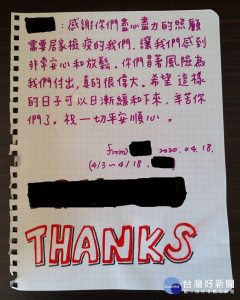 ：感謝你們盡心盡力的照顧
需要居家檢疫的我們，讓我們感到
非常安心和放鬆。你們冒著風險為
我們付出，真的很偉大。希望這樣
的日子可以日漸緩和下來，辛苦你
們了。祝一切平安順心。
from 2020.04.18.
(4/3～4/18.
THANKS
台灣好新聞